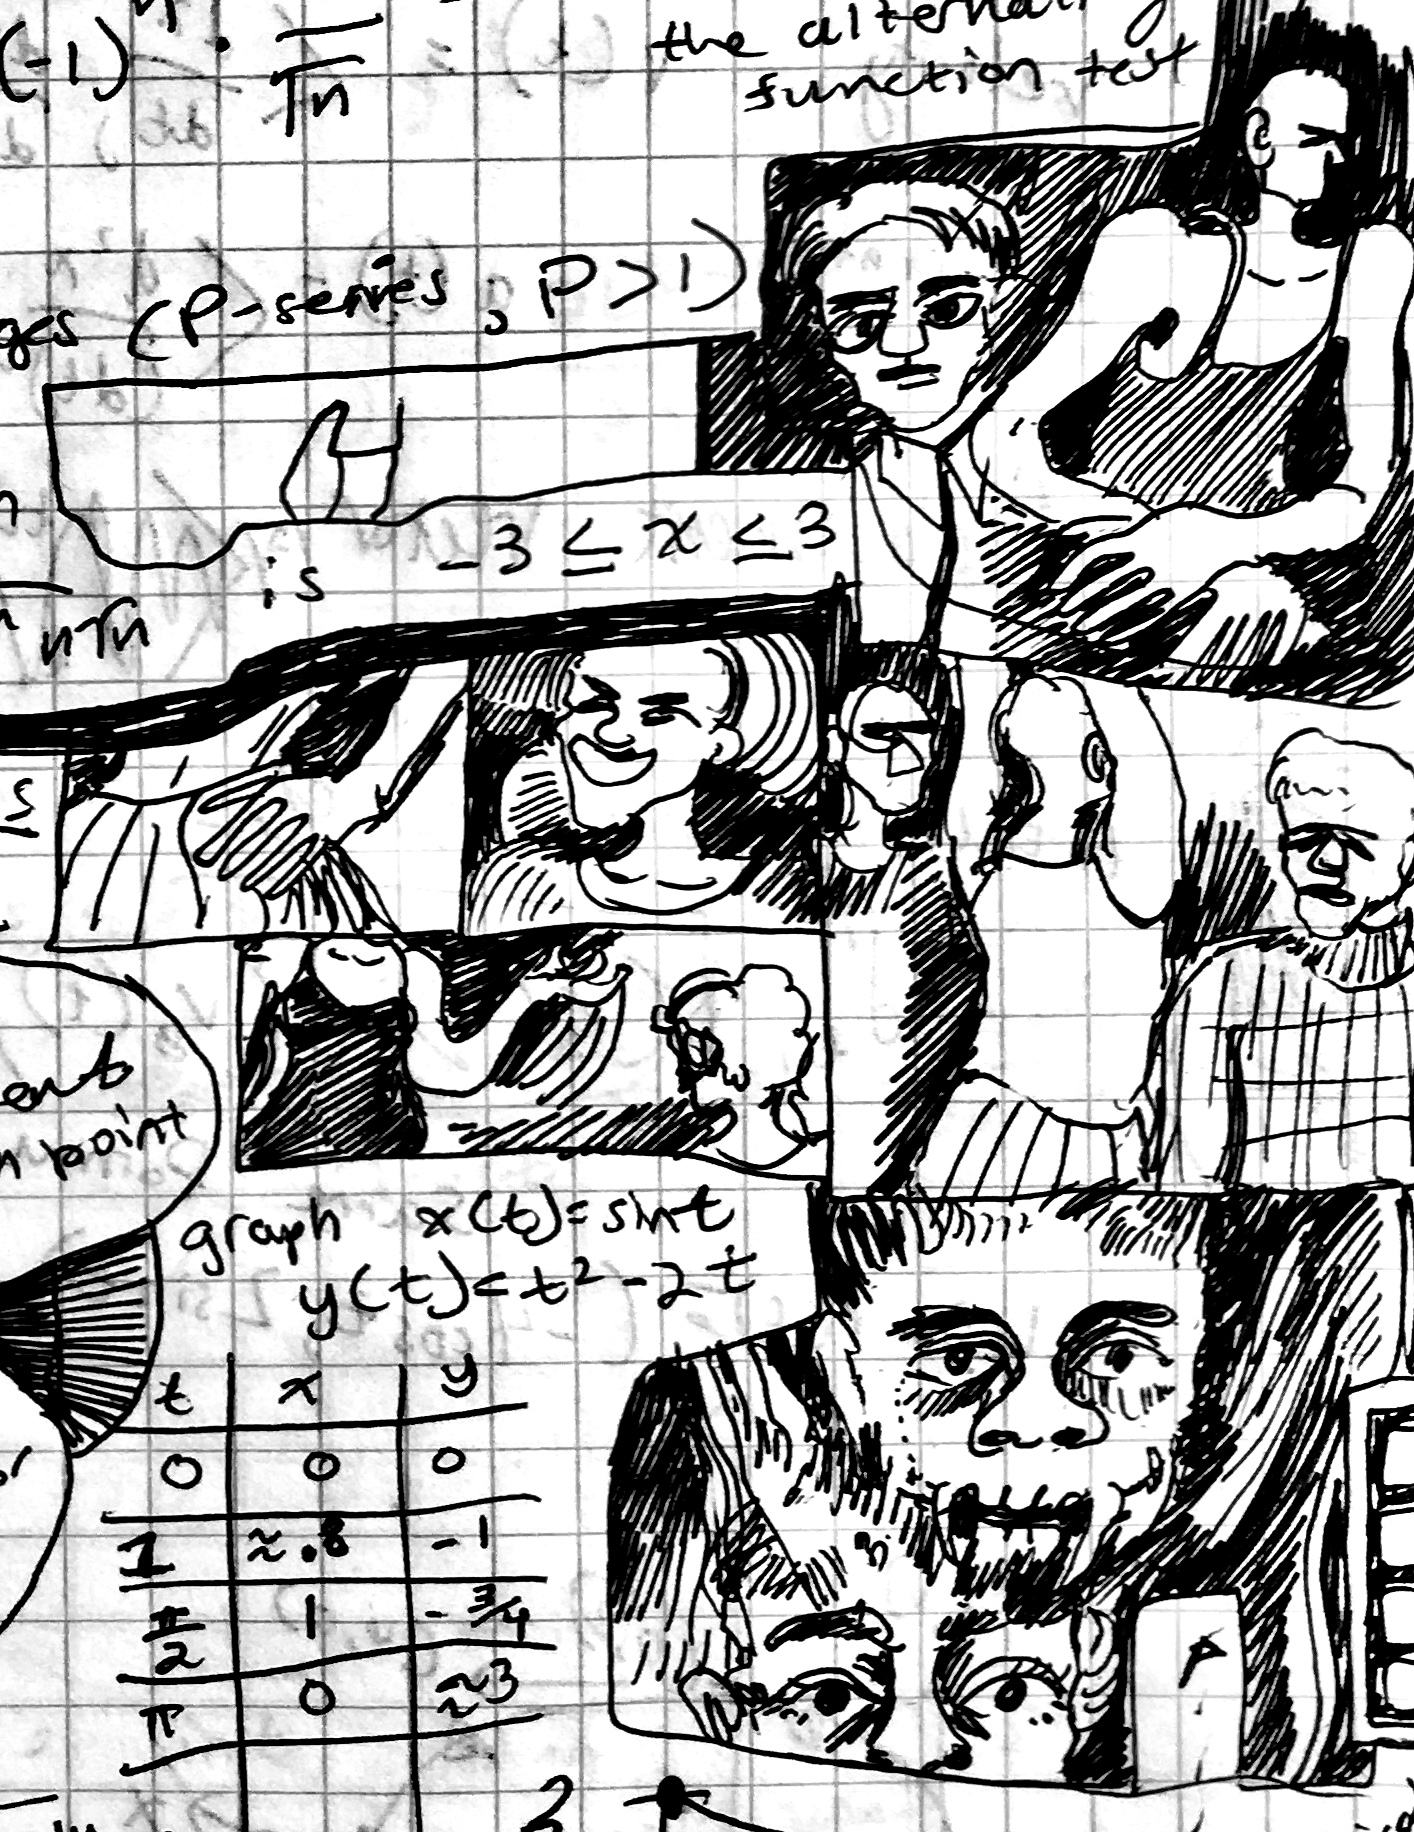 (-1)^n · ‾/√n
the alternating
function test
ges (P-series, P > 1)
is -3 ≤ x ≤ 3
n√n
s
ent
n point
graph x(t) = sin t
y(t) = t² - 2t
t x y
0 0 0
1 ≈.8 -1
π/2 1 -3/4
π 0 ≈3
2